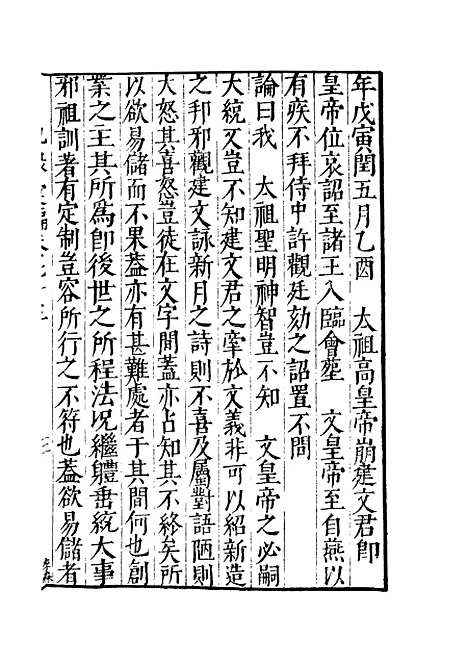 年戊寅閏五月乙酉　太祖高皇帝崩建文君即
皇帝位哀詔至諸王入臨會塟　文皇帝至自燕以
有疾不拜侍中許觀廷劾之詔置不問
論曰我　太祖聖明神智豈不知　文皇帝之必嗣
大統又豈不知建文君之牽於文義非可以紹新造
之邦邪觀建文詠新月之詩則不喜及屬對語陋則
大怒其喜怒豈徒在文字間蓋亦占知其不終矣所
以欲易儲而不果蓋亦有甚難處者于其間何也創
業之主其所為即後世之所程法况繼體垂統大事
邪祖訓著有定制豈容所行之不符也蓋欲易儲者